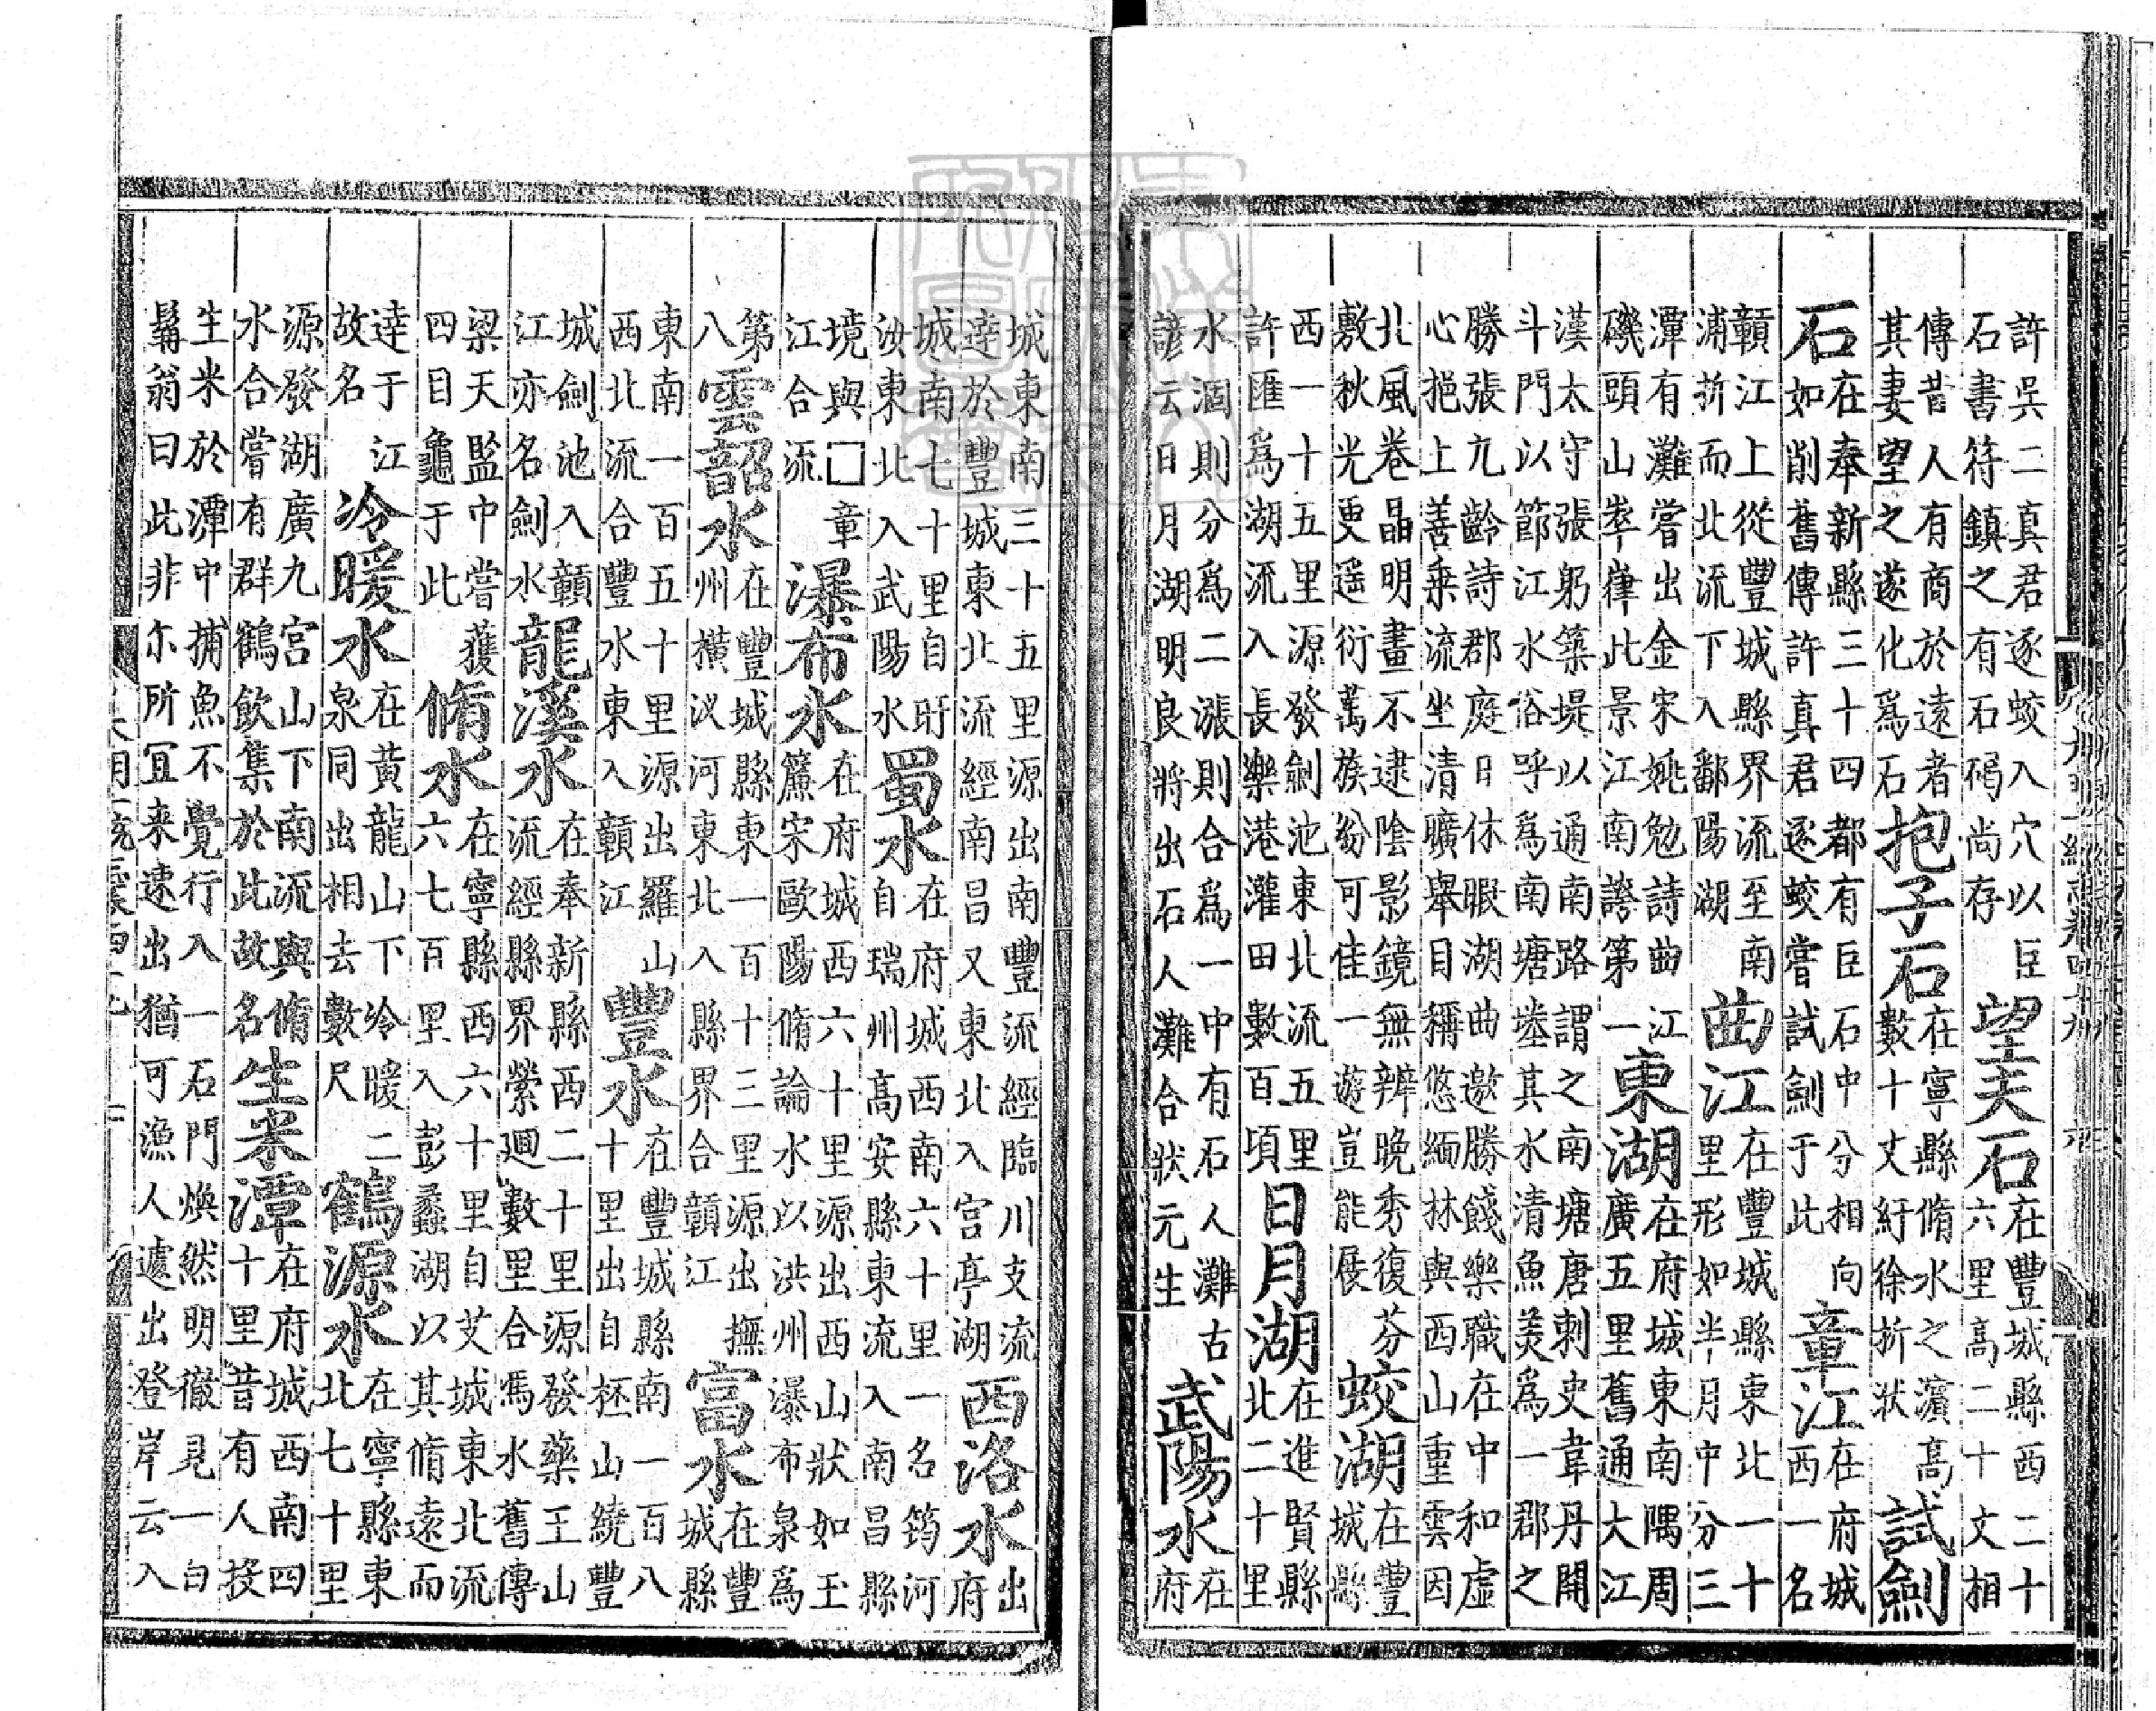 許吳二真君逐蛟入穴以巨
石書符鎮之有石碣尚存
望夫石
在豐城縣西二十
六里高二十丈相
傳昔人有商於遠者
其妻望之遂化爲石
抱子石
在寧縣脩水之濵高
數十丈紆徐折状
試劍
石
在奉新縣三十四都有巨石中分相向
如削舊傳許真君逐蛟嘗試劍于此
章江
在府城
西一名
贛江上從豐城縣界流至南
浦折而北流下入鄱陽湖
曲江
在豐城縣東北一十
里形如半月中分三
潭有灘嘗出金宋姚勉詩曲江
磯頭山崒嵂此景江南誇第一
東湖
在府城東南隅周
廣五里舊通大江
漢太守張躬築堤以通南路謂之南塘唐刺史韋丹開
斗門以節江水俗呼爲南塘其水清魚美爲一郡之
勝張九齡詩郡庭日休暇湖曲邀勝餞樂職在中和虛
心挹上善乗流坐清曠舉目稱悠緬林與西山重雲因
北風卷晶明畫不逮陰影鏡無辨晚秀復芬
敷秋光更遥衍萬族紛可佳一遊豈能展
蛟湖
在豐
城縣
西一十五里源發劍池東北流五里
許匯爲湖流入長樂港灌田數百頃
日月湖
在進賢縣
北二十里
水涸則分爲二漲則合爲一中有石人灘古
諺云日月湖明良將出石人灘合狀元生
武陽水
在
府
城東南三十五里源出南豐流經臨川支流
達於豐城東北流經南昌又東北入宫亭湖
西洛水
出
府
城南七十里自旴
汝東北入武陽水
蜀水
在府城西南六十里一名筠河
自瑞州高安縣東流入南昌縣
境與□章
江合流
瀑布水
在府城西六十里源出西山狀如玉
簾宋歐陽脩論水以洪州瀑布泉爲
第
八
雲韶水
在豐城縣東一百十三里源出撫
州横汊河東北入縣界合贛江
富水
在豐
城縣
東南一百五十里源出羅山
西北流合豐水東入贛江
豐水
在豐城縣南一百八
十里出自柸山繞豐
城劍池入贛
江亦名劍水
龍溪水
在奉新縣西二十里源發藥王山
流經縣界縈迴數里合馮水舊傳
梁天監中嘗獲
四目龜于此
脩水
在寧縣西六十里自艾城東北流
六七百里入彭蠡湖以其脩遠而
達于江
故名
冷暖水
在黄龍山下冷暖二
泉同出相去數尺
鶴源水
在寧縣東
北七十里
源發湖廣九宫山下南流與脩
水合嘗有群鶴飲集於此故名
生米潭
在府城西南四
十里昔有人投
生米於潭中捕魚不覺行入一石門焕然明徹見一白
鬚翁曰此非尒所宜来速出猶可漁人遽出登岸云入